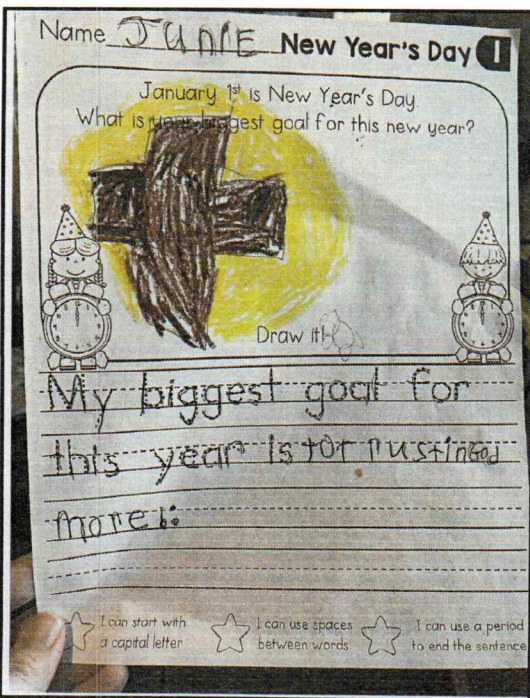 Name JUNIE New Year's Day 1
January 1st is New Year's Day.
What is your biggest goal for this new year?
Draw it!
My biggest goal for
this year is tot rust in God
more.
I can start with
a capital letter
I can use spaces
between words
I can use a period
to end the sentence